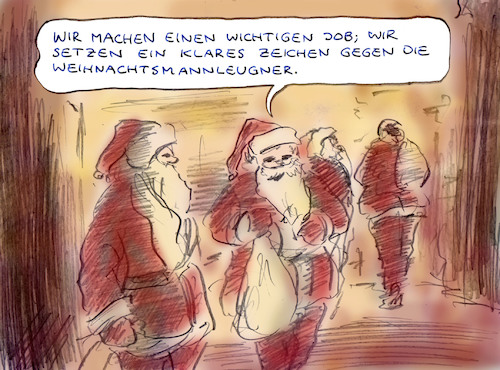 WIR MACHEN EINEN WICHTIGEN JOB; WIR
SETZEN EIN KLARES ZEICHEN GEGEN DIE
WEIHNACHTSMANNLEUGNER.